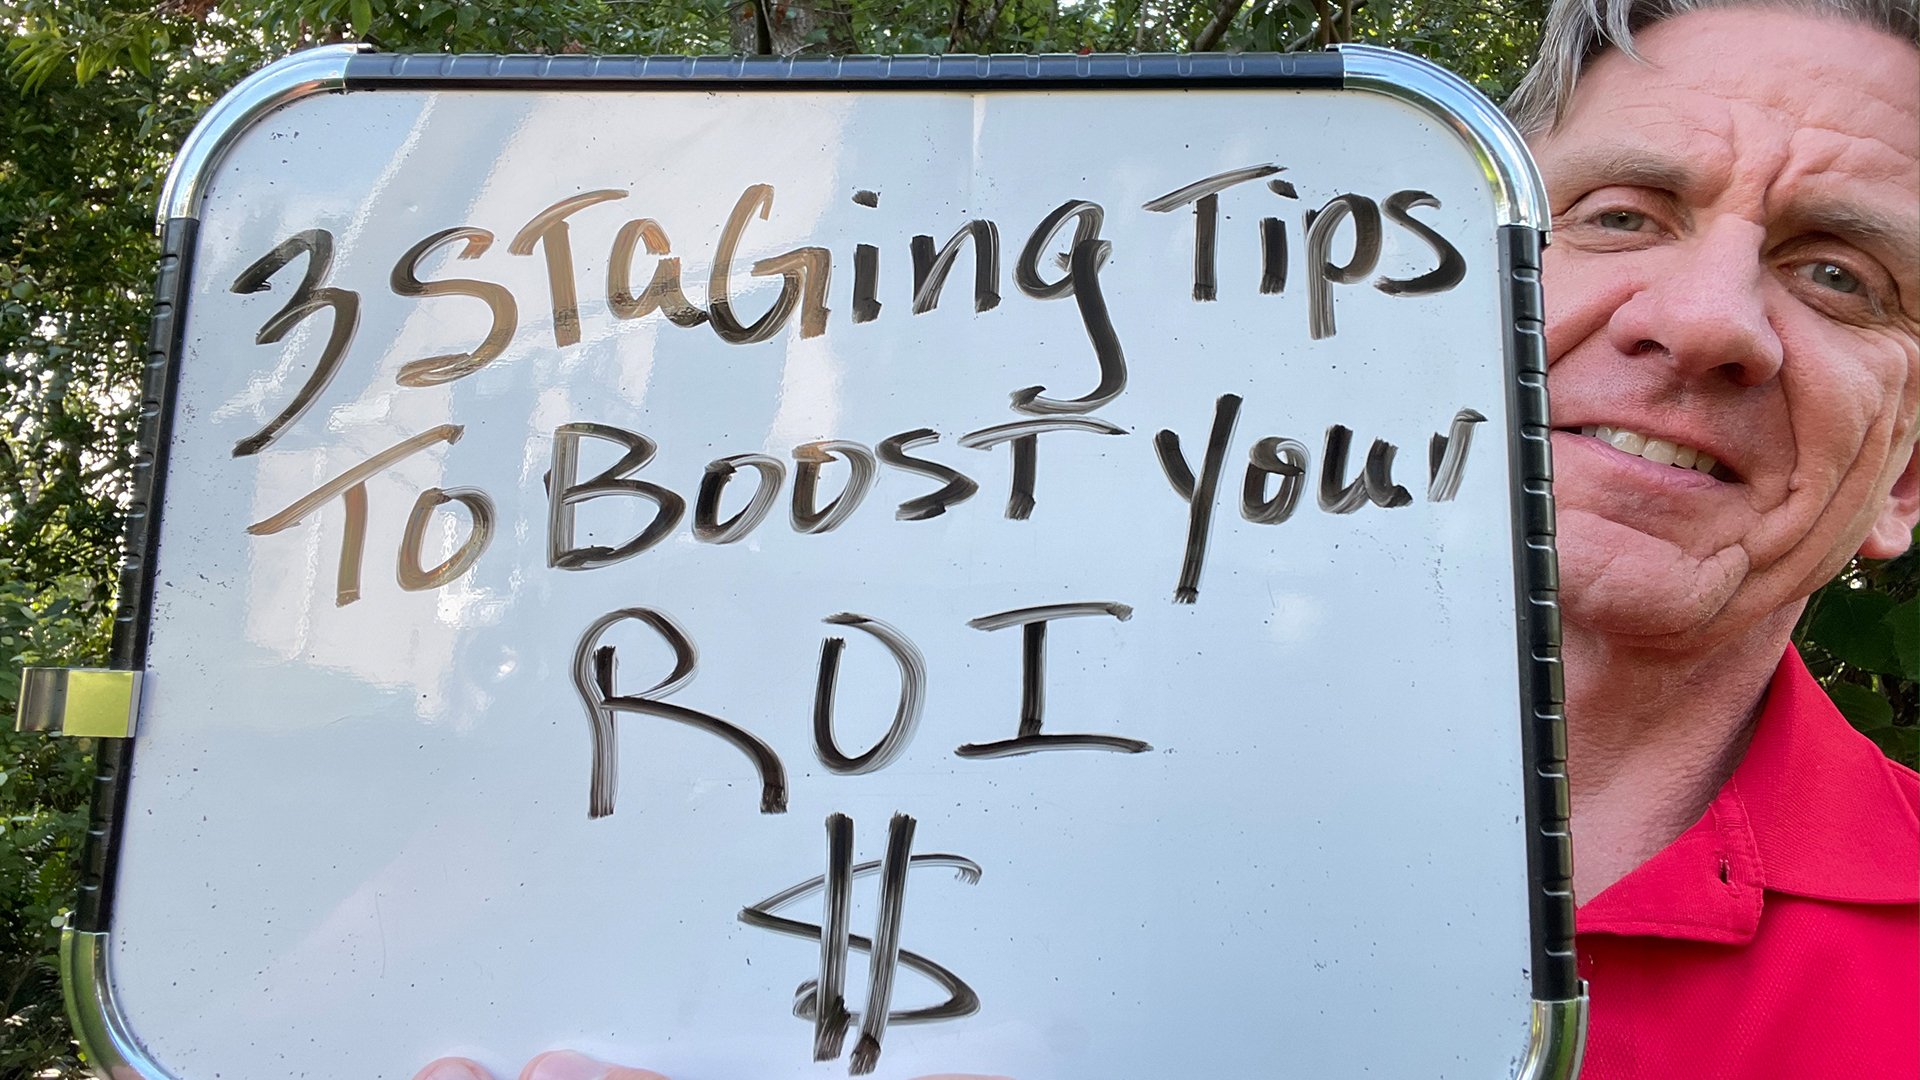 3 STaGing Tips
To BOOST your
ROI
$